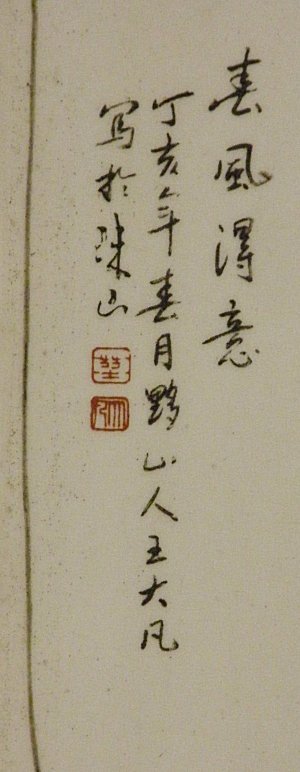 春風得意
丁亥年春月黟山人王大凡
寫於珠山